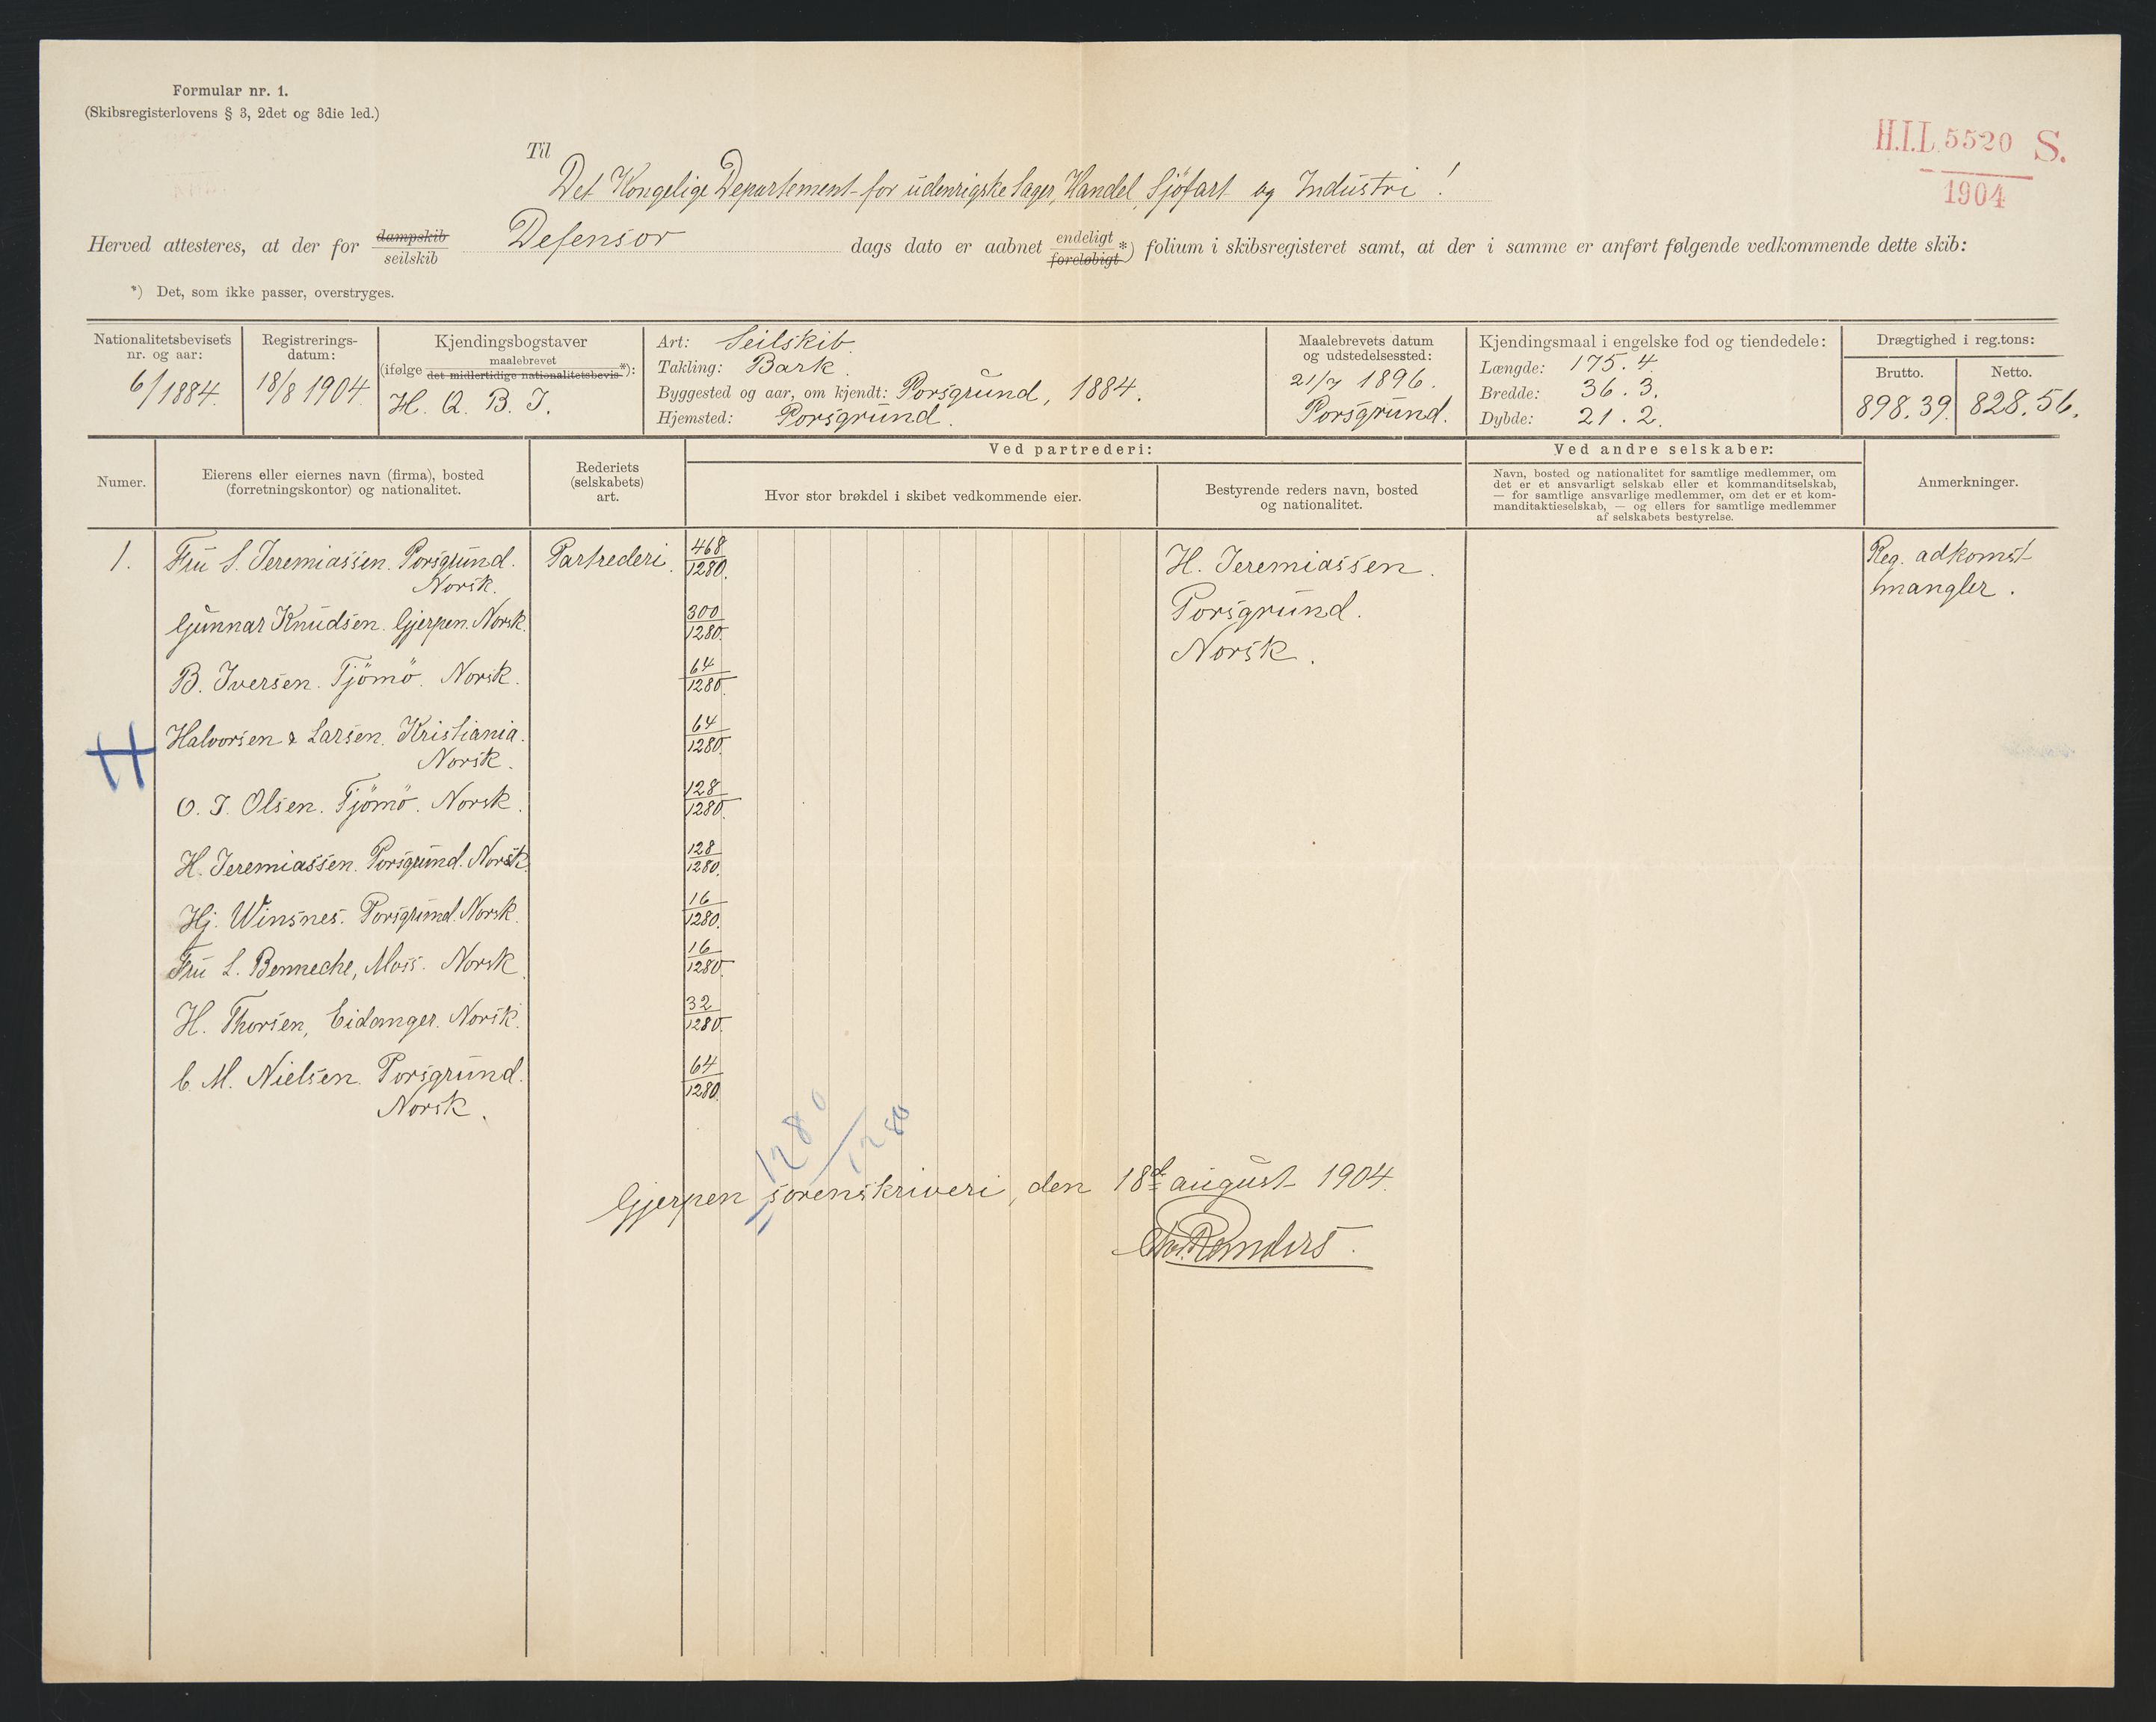 Formular nr. 1.
(Skibsregisterlovens § 3, 2det og 3die led.)
H.I.L. 5520 S.
1904
Til
Det Kongelige Departement for udenrigske Sager, Handel, Sjöfart og Industri!
Herved attesteres, at der for dampskib seilskib Defensor dags dato er aabnet endeligt foreløbigt *) folium i skibsregisteret samt, at der i samme er anført følgende vedkommende dette skib:
*) Det, som ikke passer, overstryges.
Nationalitetsbevisets nr. og aar:
6/1884.
Registrerings-datum:
18/8 1904
Kjendingsbogstaver
(ifølge maalebrevet det midlertidige nationalitetsbevis *):
H. Q. B. J.
Art: Seilskib.
Takling: Bark.
Byggested og aar, om kjendt: Porsgrund, 1884.
Hjemsted: Porsgrund.
Maalebrevets datum
og udstedelsessted:
21/7 1896.
Porsgrund.
Kjendingsmaal i engelske fod og tiendedele:
Længde: 175.4.
Bredde: 36.3.
Dybde: 21.2.
Drægtighed i reg.tons:
Brutto. Netto.
898.39. 828.56.
Numer.
Eierens eller eiernes navn (firma), bosted
(forretningskontor) og nationalitet.
Rederiets
(selskabets)
art.
Ved partrederi:
Hvor stor brøkdel i skibet vedkommende eier.
Bestyrende reders navn, bosted
og nationalitet.
Ved andre selskaber:
Navn, bosted og nationalitet for samtlige medlemmer, om
det er et ansvarligt selskab eller et kommanditselskab,
— for samtlige ansvarlige medlemmer, om det er et kom-
manditaktieselskab, — og ellers for samtlige medlemmer
af selskabets bestyrelse.
Anmerkninger.
1. Fru S. Jeremiassen. Porsgrund. Partrederi. 468/1280. H. Jeremiassen. Reg. adkomst
Norsk. mangler.
Gunnar Knudsen. Gjerpen. Norsk. 300/1280. Porsgrund.
B. Iversen. Tjömö. Norsk. 64/1280. Norsk.
H
Halvorsen & Larsen. Kristiania. 64/1280.
Norsk.
O. J. Olsen. Tjömö. Norsk. 128/1280.
H. Jeremiassen. Porsgrund. Norsk. 128/1280.
Hj. Winsnes. Porsgrund. Norsk. 16/1280.
Fru L. Benneche, Moss. Norsk. 16/1280.
H. Thorsen, Eidanger. Norsk. 32/1280.
C. M. Nielsen. Porsgrund. 64/1280.
Norsk.
1280/1280
Gjerpen sorenskriveri, den 18de august 1904.
Randers.